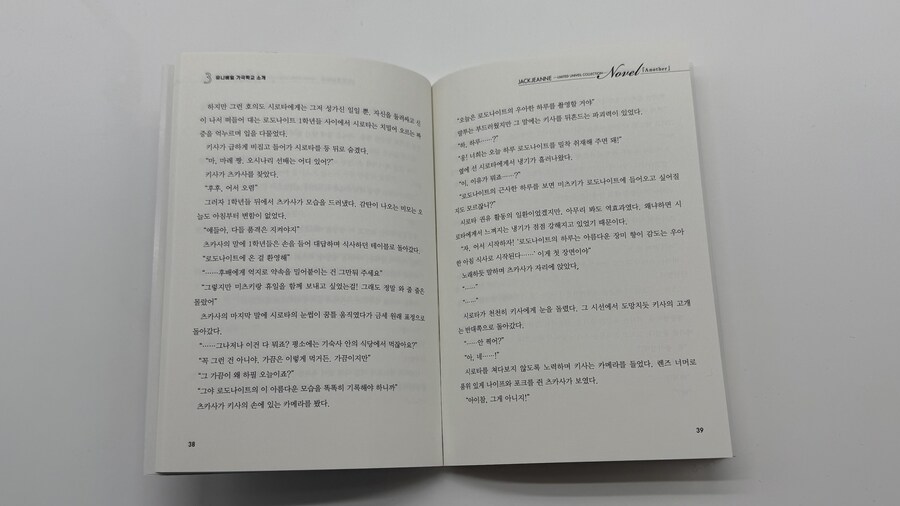 3 유니베일 가극학교 소개
하지만 그런 호의도 시로타에게는 그저 성가신 일일 뿐. 자신을 돌봐주고 싶
이 나서 떠들어 대는 로도나이트 1학년들 사이에서 시로타는 치밀어 오르는 짜
증을 억누르며 입을 다물었다.
키사가 급하게 비집고 들어가 시로타를 등 뒤로 숨겼다.
“바, 마레 짱. 오시나리 선배는 어디 있어?”
키사가 츠카사를 찾았다.
“후후, 어서 오렴”
그러자 1학년들 뒤에서 츠카사가 모습을 드러냈다. 감탄이 나오는 미모는 오
늘도 아침부터 변함이 없었다.
“얘들아, 다들 품격은 지켜야지”
츠카사의 말에 1학년들은 손을 들어 대답하며 식사하던 테이블로 돌아갔다.
“로도나이트에 온 걸 환영해”
“……후배에게 억지로 약속을 밀어붙이는 건 그만둬 주세요”
“그렇지만 미츠키랑 휴일을 함께 보내고 싶었는걸! 그래도 정말 와 줄 줄은
몰랐어”
츠카사의 마지막 말에 시로타의 눈썹이 꿈틀 움직였다가 금세 원래 표정으로
돌아갔다.
“……그나저나 이건 다 뭐죠? 평소에는 기숙사 안의 식당에서 먹잖아요?”
“꼭 그런 건 아니야. 가끔은 이렇게 먹거든. 가끔이지만”
“그 가끔이 왜 하필 오늘이죠?”
“그야 로도나이트의 이 아름다운 모습을 똑똑히 기록해야 하니까”
츠카사가 키사의 손에 있는 카메라를 봤다.
38
JACKJEANNE —UNITED NOVEL COLLECTION— Novel [Another]
“오늘은 로도나이트의 우아한 하루를 촬영할 거야”
말투는 부드러웠지만 그 말에는 키사를 뒤흔드는 파괴력이 있었다.
“하, 하루……?”
“응! 너희는 오늘 하루 로도나이트를 밀착 취재해 주면 돼!”
옆에 선 시로타에게서 냉기가 흘러나왔다.
“이, 이유가 뭐죠……?”
“로도나이트의 근사한 하루를 보면 미츠키가 로도나이트에 들어오고 싶어질
지도 모르잖니?”
시로타 권유 활동의 일환이었겠지만, 아무리 봐도 역효과였다. 왜냐하면 시
로타에게서 느껴지는 냉기가 점점 강해지고 있었기 때문이다.
“자, 어서 시작하자! ‘로도나이트의 하루는 아름다운 장미 향이 감도는 우아
한 아침 식사로 시작된다……’ 이게 첫 장면이야”
노래하듯 말하며 츠카사가 자리에 앉았다.
“……”
“……”
시로타가 천천히 키사에게 눈을 돌렸다. 그 시선에서 도망치듯 키사의 고개
는 반대쪽으로 돌아갔다.
“……안 찍어?”
“아, 네……!”
시로타를 쳐다보지 않도록 노력하며 키사는 카메라를 들었다. 렌즈 너머로
품위 있게 나이프와 포크를 쥔 츠카사가 보였다.
“아이참, 그게 아니지!”
39